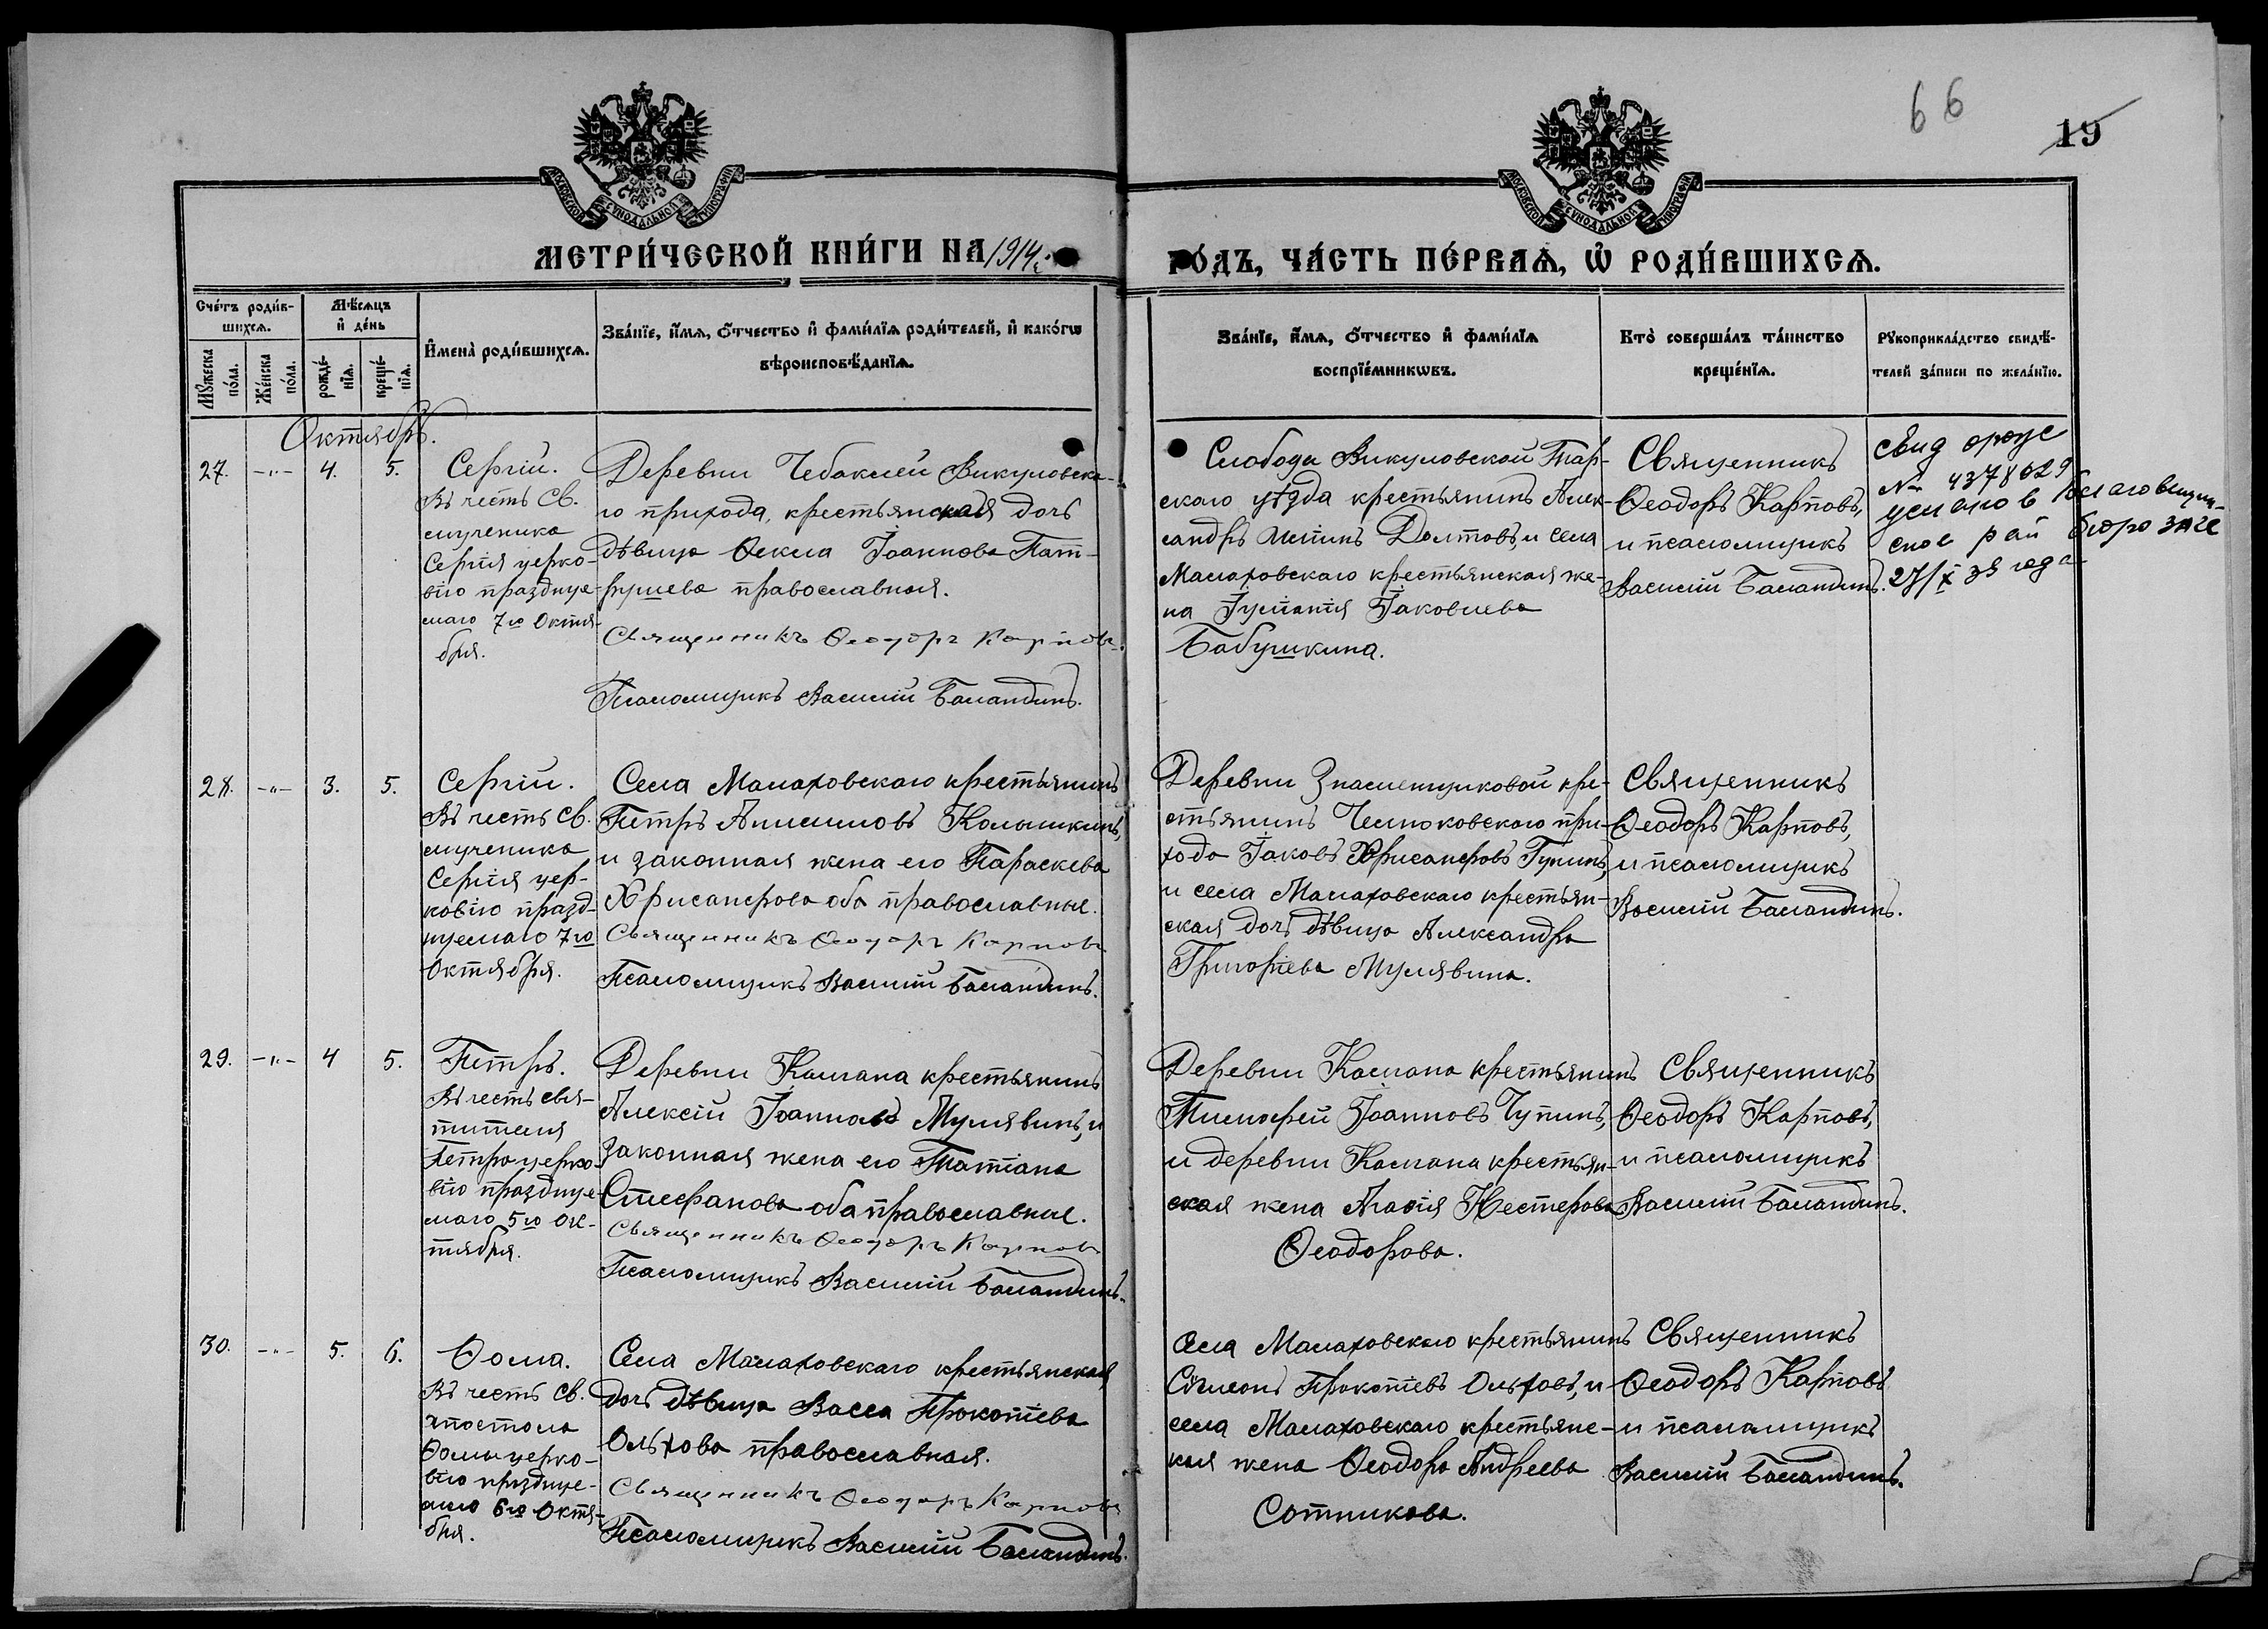 66
19
МОСКОВСКОЙ СУНОДАЛЬНОЙ ТИПОГРАФІИ
МОСКОВСКОЙ СУНОДАЛЬНОЙ ТИПОГРАФІИ
МЕТРИ́ЧЕСКОЙ КНИ́ГИ НА 1914 г.
ГО́ДЪ, ЧА́СТЬ ПЕ́РВАѦ, Ѡ҆ РОДИ́ВШИХСѦ.
Сче́тъ роди́в-
шихсѧ.
Мꙋ́жеска по́ла.
Же́нска по́ла.
Мѣ́сѧцъ и҆ де́нь
рожде́-
нїѧ.
креще́-
нїѧ.
И҆мена̀ роди́вшихсѧ.
Зва́нїе, и҆́мѧ, ѻ҆́тчество и҆ фами́лїѧ роди́телей, и҆ како́гѡ
вѣроисповѣ́данїѧ.
Зва́нїе, и҆́мѧ, ѻ҆́тчество и҆ фами́лїѧ
воспрїе́мникѡвъ.
Кто̀ соверша́лъ та́инство
креще́нїѧ.
Рꙋкоприкла́дство свидѣ́-
телей за́писи по жела́нїю.
Октябрь.
27. -"- 4. 5.
Сергій.
Въ честь св.
мученика
Сергія церко-
вію празднуе-
маго 7го Октя-
бря.
Деревни Чебаклей Викуловска-
го прихода, крестьянская дочь
дѣвица Ѳекла Іоаннова Пат-
рушева православная.
Священникъ Ѳеодоръ Карповъ.
Псаломщикъ Василій Баландинъ.
Слободы Викуловской Тар-
скаго уѣзда крестьянинъ Алек-
сандръ Долтовъ, и села
Малаховскаго крестьянская же-
на Іуліанія Іаковлева
Бабушкина.
Священникъ
Ѳеодоръ Карповъ,
и псаломщикъ
Василій Баландинъ.
Свид
№ 4378629
в Благовещен-
ское рай бюро загс
27/X 39 года
28. -"- 3. 5.
Сергій.
Въ честь св.
мученика
Сергія цер-
ковію празд-
нуемаго 7го
Октября.
Села Малаховскаго крестьянинъ
Петръ Колышкинъ,
и законная жена его Параскева
Хрисанфова оба православные.
Священникъ Ѳеодоръ Карповъ
Псаломщикъ Василій Баландинъ.
Деревни Знаменщиковой кре-
стьянинъ при-
хода Іаковъ Хрисанфовъ
и села Малаховскаго крестьян-
ская дочь дѣвица Александра
Григоріева Мулявина.
Священникъ
Ѳеодоръ Карповъ,
и псаломщикъ
Василій Баландинъ.
29. -"- 4 5.
Петръ.
Въ честь свя-
тителя
Петра церко-
вію празднуе-
маго 5го Ок-
тября.
Деревни Калгана крестьянинъ
Алексій Іоанновъ Мулявинъ, и
законная жена его Татіана
Стефанова оба православные.
Священникъ Ѳеодоръ Карповъ
Псаломщикъ Василій Баландинъ.
Деревни Калгана крестьянинъ
Тимофей Іоанновъ Чупинъ,
и деревни Калгана крестьян-
ская жена Агафія Нестерова
Ѳеодорова.
Священникъ
Ѳеодоръ Карповъ,
и псаломщикъ
Василій Баландинъ.
30. -"- 5. 6.
Ѳома.
Въ честь св.
апостола
Ѳомы церко-
вію празднуе-
маго 6го Октя-
бря.
Села Малаховскаго крестьянская
дочь дѣвица Васса Прокопіева
Ольхова православная.
Священникъ Ѳеодоръ Карповъ
Псаломщикъ Василій Баландинъ.
Села Малаховскаго крестьянинъ
Сѵмеонъ Прокопіевъ Ольховъ, и
села Малаховскаго крестьянс-
кая жена Ѳеодора Андреева
Сотникова.
Священникъ
Ѳеодоръ Карповъ
и псаломщикъ
Василій Баландинъ.